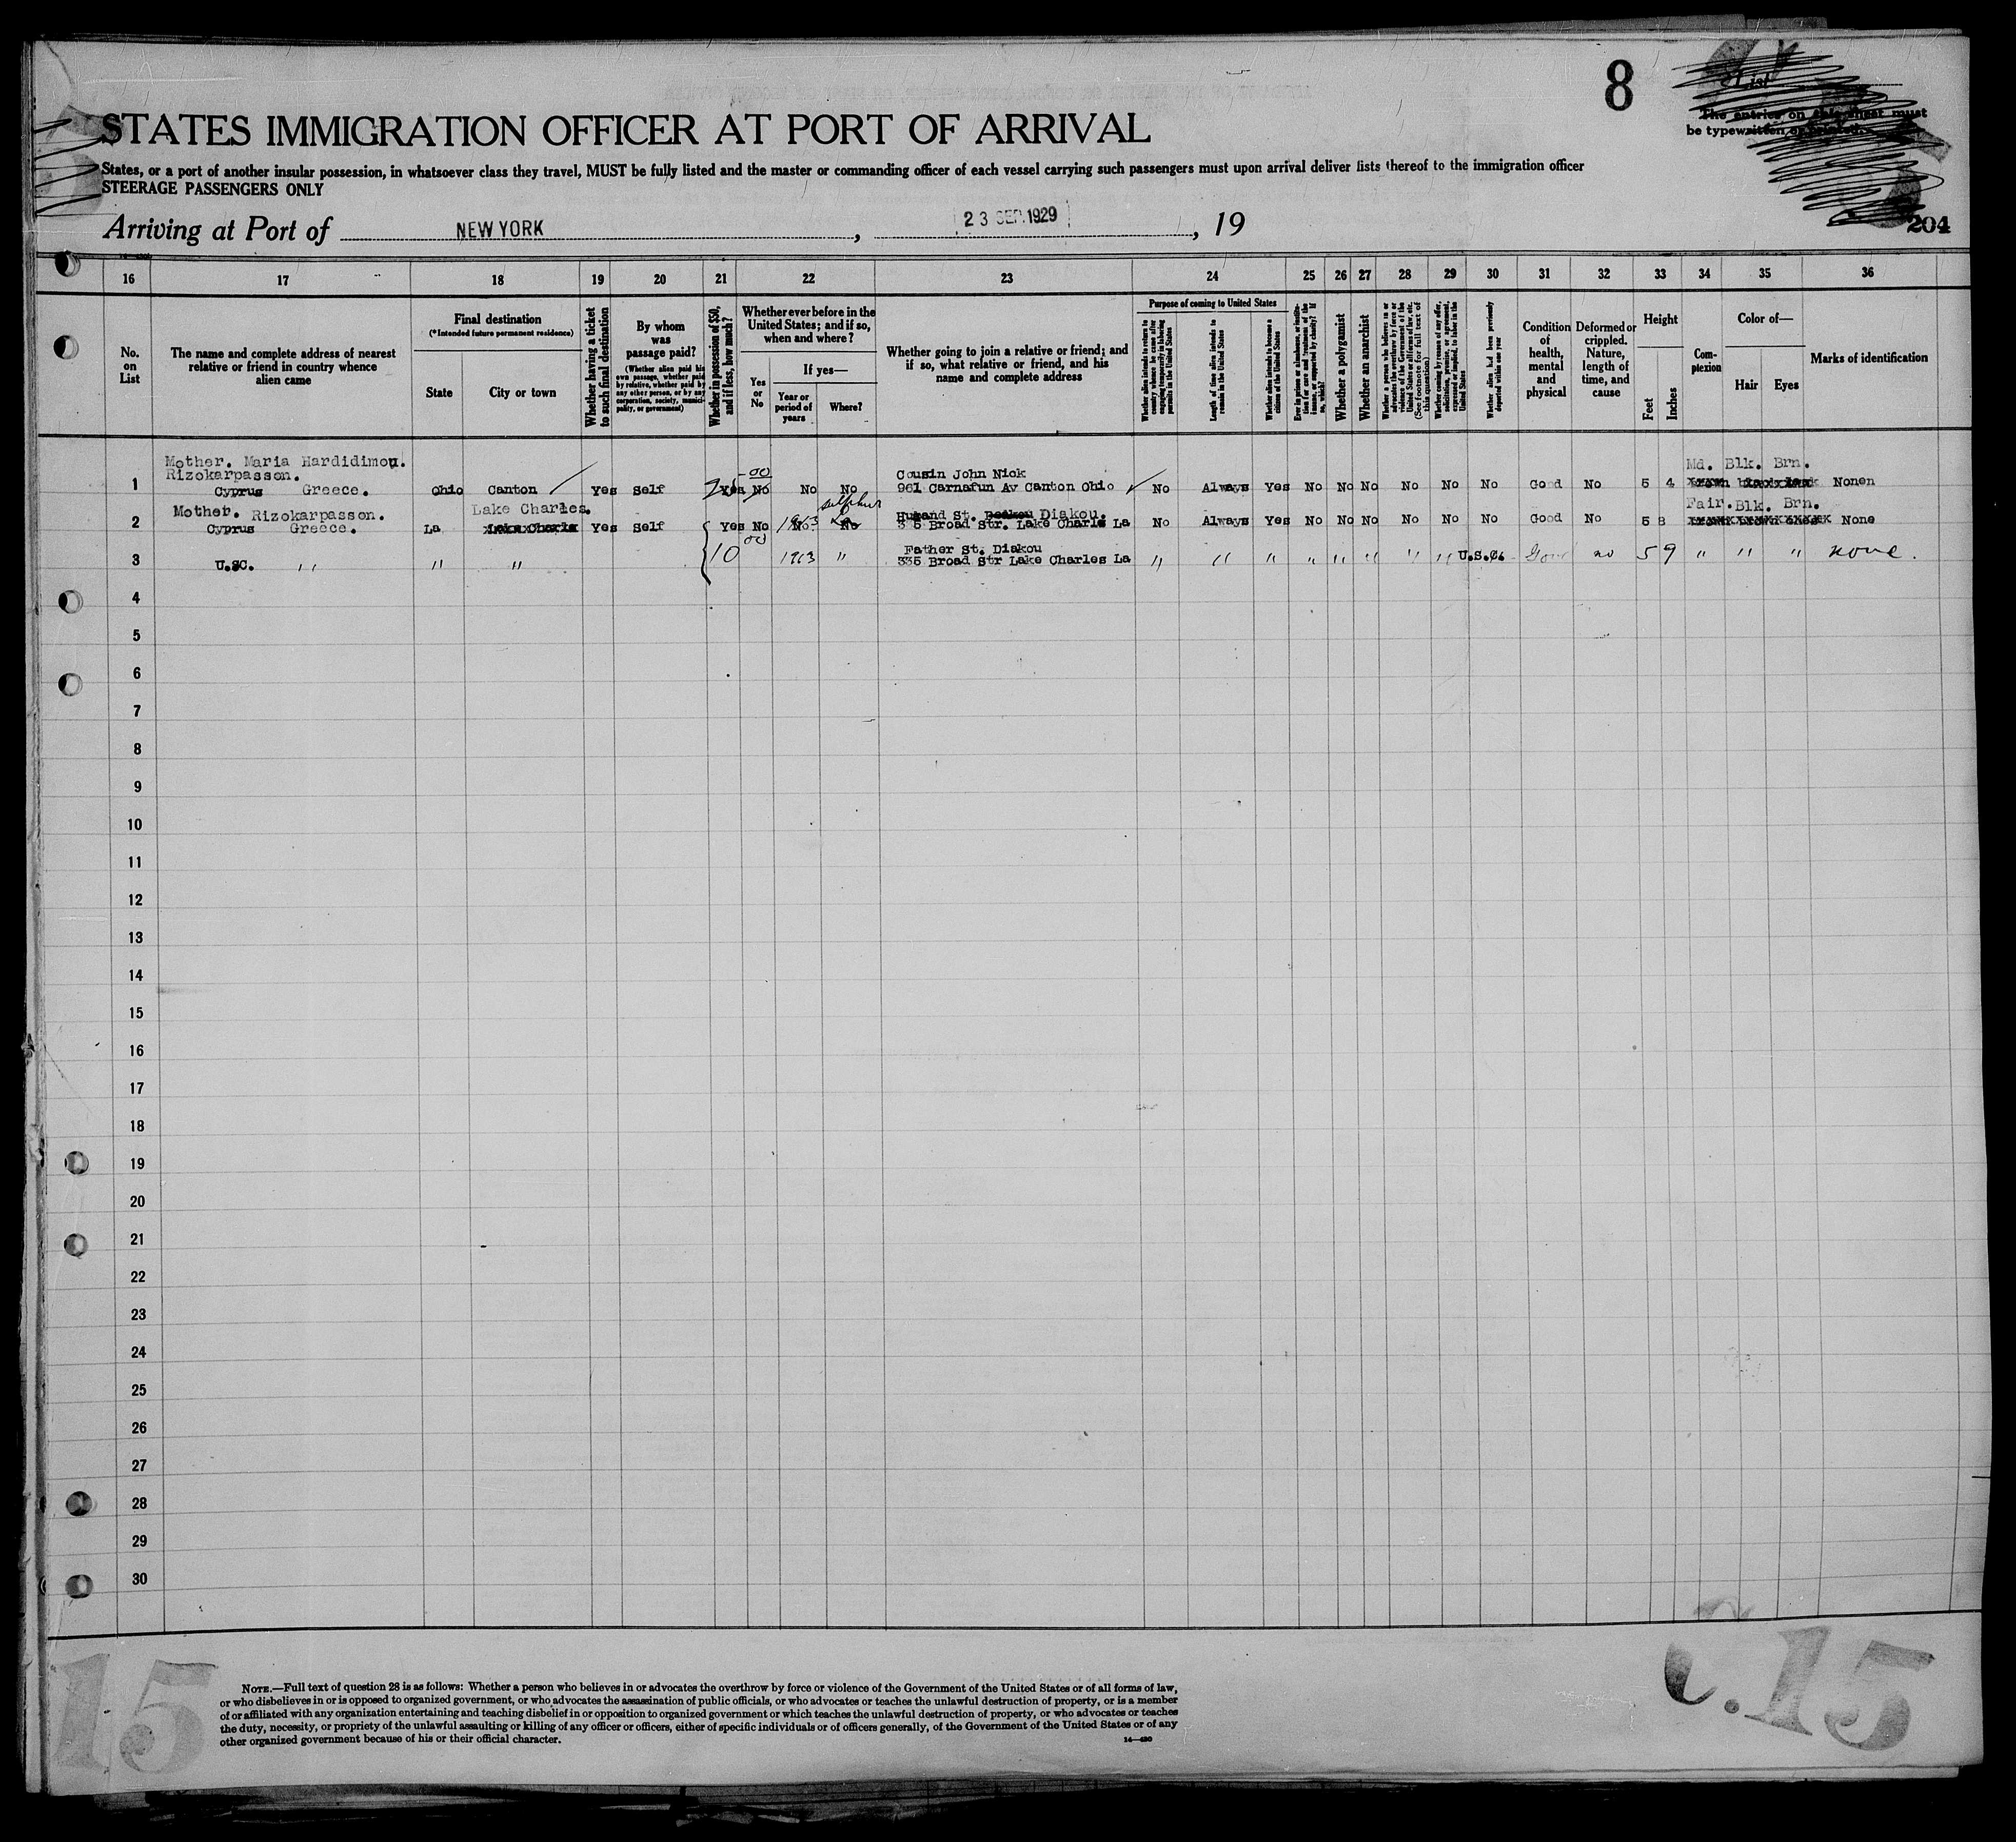 8
List
The entries on this sheet must
be typewritten or printed.
STATES IMMIGRATION OFFICER AT PORT OF ARRIVAL
States, or a port of another insular possession, in whatsoever class they travel, MUST be fully listed and the master or commanding officer of each vessel carrying such passengers must upon arrival deliver lists thereof to the immigration officer
STEERAGE PASSENGERS ONLY
Arriving at Port of NEW YORK, 23 SEP. 1929, 19
204
16 17 18 19 20 21 22 23 24 25 26 27 28 29 30 31 32 33 34 35 36
No. on List
The name and complete address of nearest relative or friend in country whence alien came
Final destination
(*Intended future permanent residence)
State
City or town
Whether having a ticket to such final destination
By whom was passage paid?
(Whether alien paid his own passage, whether paid by relative, whether paid by any other person, or by any corporation, society, municipality, or government)
Whether in possession of $50, and if less, how much?
Whether ever before in the United States; and if so, when and where?
Yes or No
If yes—
Year or period of years
Where?
Whether going to join a relative or friend; and if so, what relative or friend, and his name and complete address
Purpose of coming to United States
Whether alien intends to return to country whence he came after engaging temporarily in laboring pursuits in the United States
Length of time alien intends to remain in the United States
Whether alien intends to become a citizen of the United States
Ever in prison or almshouse, or institution for care and treatment of the insane, or supported by charity? If so, which?
Whether a polygamist
Whether an anarchist
Whether a person who believes in or advocates the overthrow by force or violence of the Government of the United States or all forms of law, etc. (See footnote for full text of this question.)
Whether coming by reason of any offer, solicitation, promise, or agreement, expressed or implied, to labor in the United States
Whether alien had been previously deported within one year
Condition of health, mental and physical
Deformed or crippled. Nature, length of time, and cause
Height
Feet
Inches
Complexion
Color of—
Hair
Eyes
Marks of identification
Mother. Maria Hardidimou.
Rizokarpasson.
Md. Blk. Brn.
1 Cyprus Greece. Ohio Canton Yes Self Yes No No No
Cousin John Nick
961 Carnafun Av Canton Ohio No Always Yes No No No No No No Good No 5 4 Nonen
Mother. Rizokarpasson.
Lake Charles.
sulphur
Fair. Blk. Brn.
2 Cyprus Greece. La Yes Self Yes No 1913 La No
Husband St. Diakou.
335 Broad Str. Lake Charles La No Always Yes No No No No No No Good No 5 8 None
3 U.SC. " " " 10 00 1913 "
Father St. Diakou
335 Broad Str Lake Charles La " " " " " " " " U.S.C. Good no 5 9 " " " none.
4
5
6
7
8
9
10
11
12
13
14
15
16
17
18
19
20
21
22
23
24
25
26
27
28
29
30
15
15
NOTE.—Full text of question 28 is as follows: Whether a person who believes in or advocates the overthrow by force or violence of the Government of the United States or of all forms of law,
or who disbelieves in or is opposed to organized government, or who advocates the assassination of public officials, or who advocates or teaches the unlawful destruction of property, or is a member
of or affiliated with any organization entertaining and teaching disbelief in or opposition to organized government or which teaches the unlawful destruction of property, or who advocates or teaches
the duty, necessity, or propriety of the unlawful assaulting or killing of any officer or officers, either of specific individuals or of officers generally, of the Government of the United States or of any
other organized government because of his or their official character.
14—430